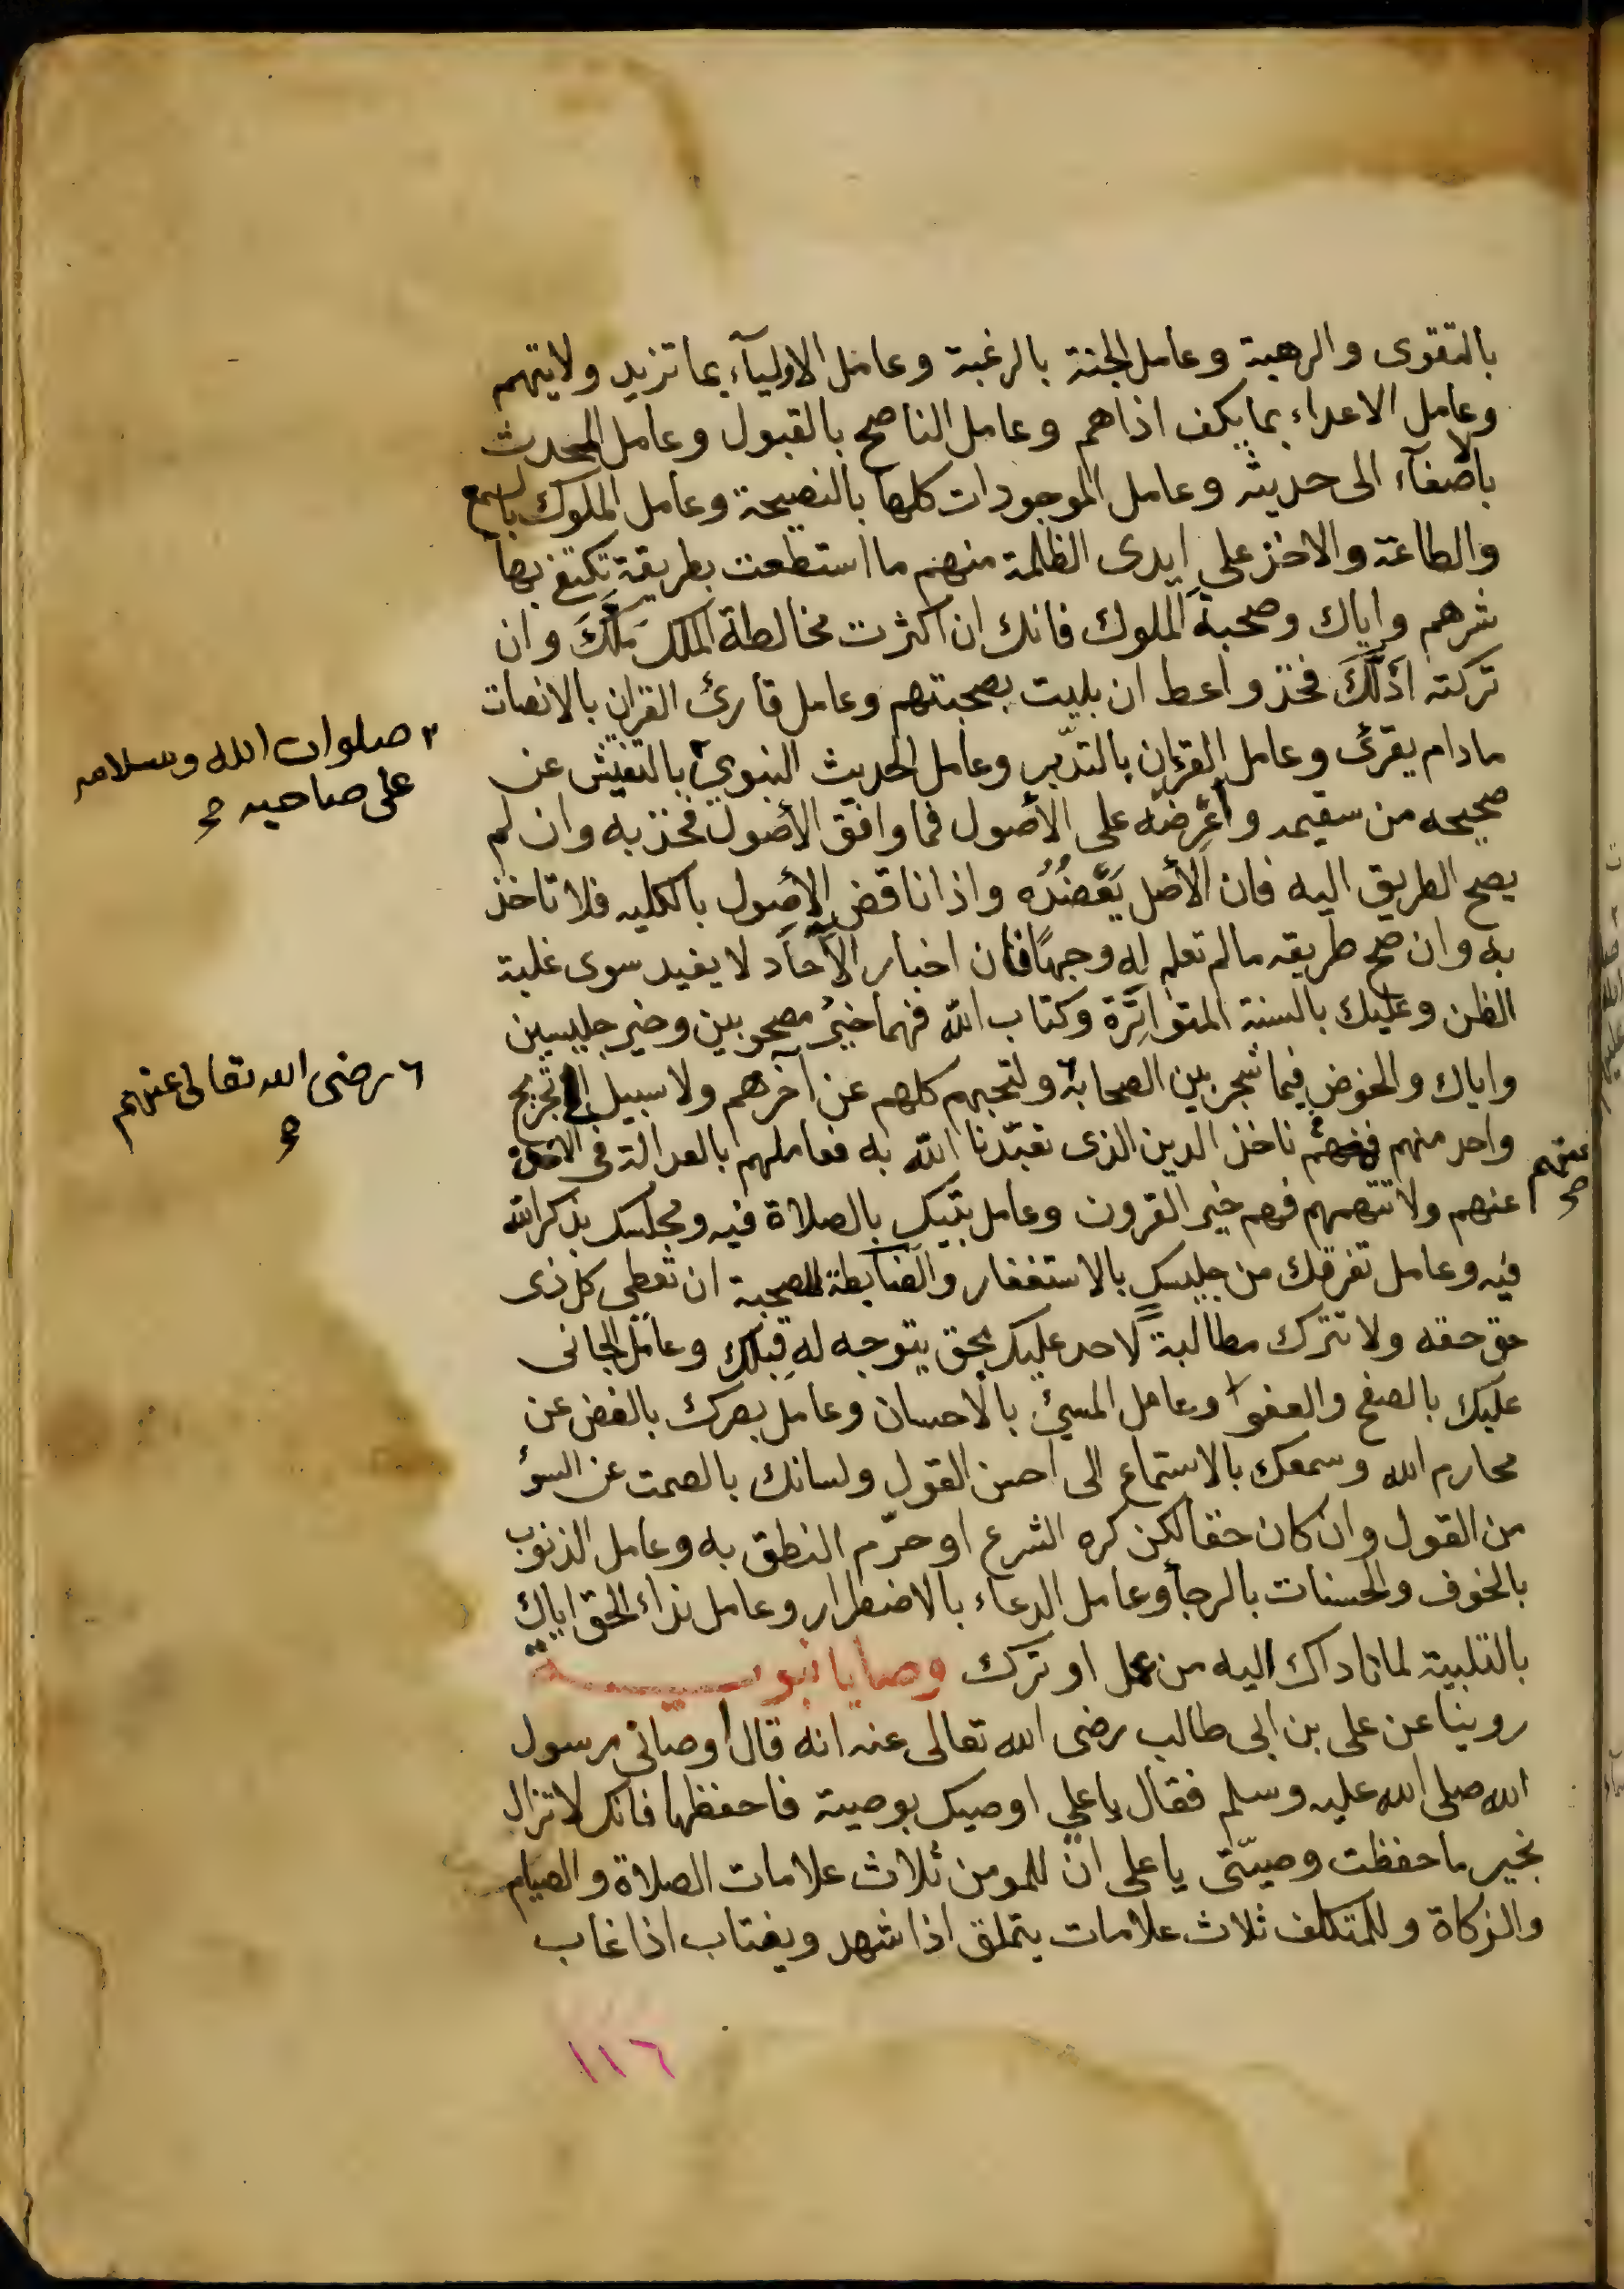 بالتقوى والرهبة وعامل الجنة بالرغبة وعامل الاوليآء بما تزيد ولايتهم
وعامل الاعداء بما يكف اذاهم وعامل الناصح بالقبول وعامل المحدث
بالاصغآء الى حديثه وعامل الموجودات كلها بالنصيحة وعامل الملوك بالسمع
والطاعة والاخذ على ايدى الظلمة منهم ما استطعت بطريقة تكتفى بها
شرهم واياك وصحبة الملوك فانك ان اكثرت مخالطة الملك ملّكَ وان
تركته اذلّكَ فخذ واعط ان بليت بصحبتهم وعامل قارئ القران بالانصات
مادام يقرئ وعامل القرءان بالتدبّر وعامل الحديث النبوي بالتفتيش عن
صحيحه من سقيمه وأعرضه على الأصول فما وافق الأصول فخذ به وان لم
يصح الطريق اليه فان الأصل يَعْضُدُه واذا ناقض الأصول بالكليه فلا تاخذ
به وان صح طريقه مالم تعلم له وجهًا فان اخبار الآحاد لا يفيد سوى غلبة
الظن وعليك بالسنة المتواترة وكتاب الله فهما خيرُ مصحوبين وخير جليسين
واياك والخوض فيما شجر بين الصحابة ولتحبهم كلهم عن آخرهم ولا سبيل الى تجريح
واحد منهم فعنهم ناخذ الدين الذى تعبّدنا الله به فعاملهم بالعدالة فى الاخذ
عنهم ولا تتهمهم فهم خير القرون وعامل بيتك بالصلاة فيه ومجلسك بذكر الله
فيه وعامل تفرقك من جليسك بالاستغفار والضابطة للصحبة ان تعطى كل ذى
حق حقه ولا تترك مطالبة لاحد عليك بحق يتوجه له قِبلك وعامل الجانى
عليك بالصفح والعفو وعامل المسيئ بالاحسان وعامل بصرك بالغض عن
محارم الله وسمعك بالاستماع الى احسن القول ولسانك بالصمت عن السوٴ
من القول وان كان حقا لكن كره الشرع او حرّم النطق به وعامل الذنوب
بالخوف والحسنات بالرجأ وعامل الدعاء بالاضطرار وعامل نداء الحق اياك
بالتلبية لما ناداك اليه من عمل او ترك وصايا نبوية
روينا عن على بن ابى طالب رضى الله تعالى عنه انه قال أوصانى رسول
الله صلى الله عليه وسلم فقال ياعلي اوصيك بوصية فاحفظها فانك لا تزال
بخير ما حفظت وصيّتى ياعلى انّ للمومن ثلاث علامات الصلاة والصيام
والزكاة وللمتكلف ثلاث علامات يتملق اذا شهد ويغتاب اذا غاب
صلوات الله وسلامه
على صاحبه
رضى الله تعالى عنهم
عنهم
١١٦